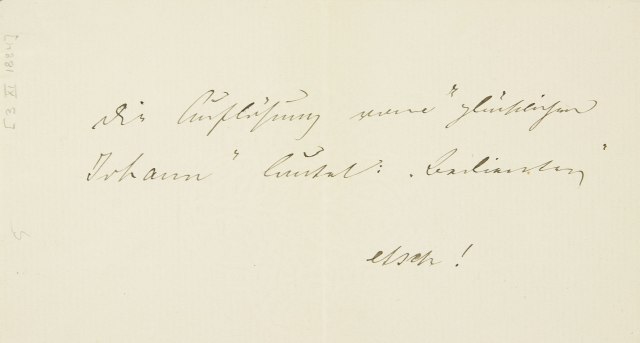 [3 XI 1884]
Die Auflösung vom "glücklichen
Johann" lautet: "Bedienten"
etsch!